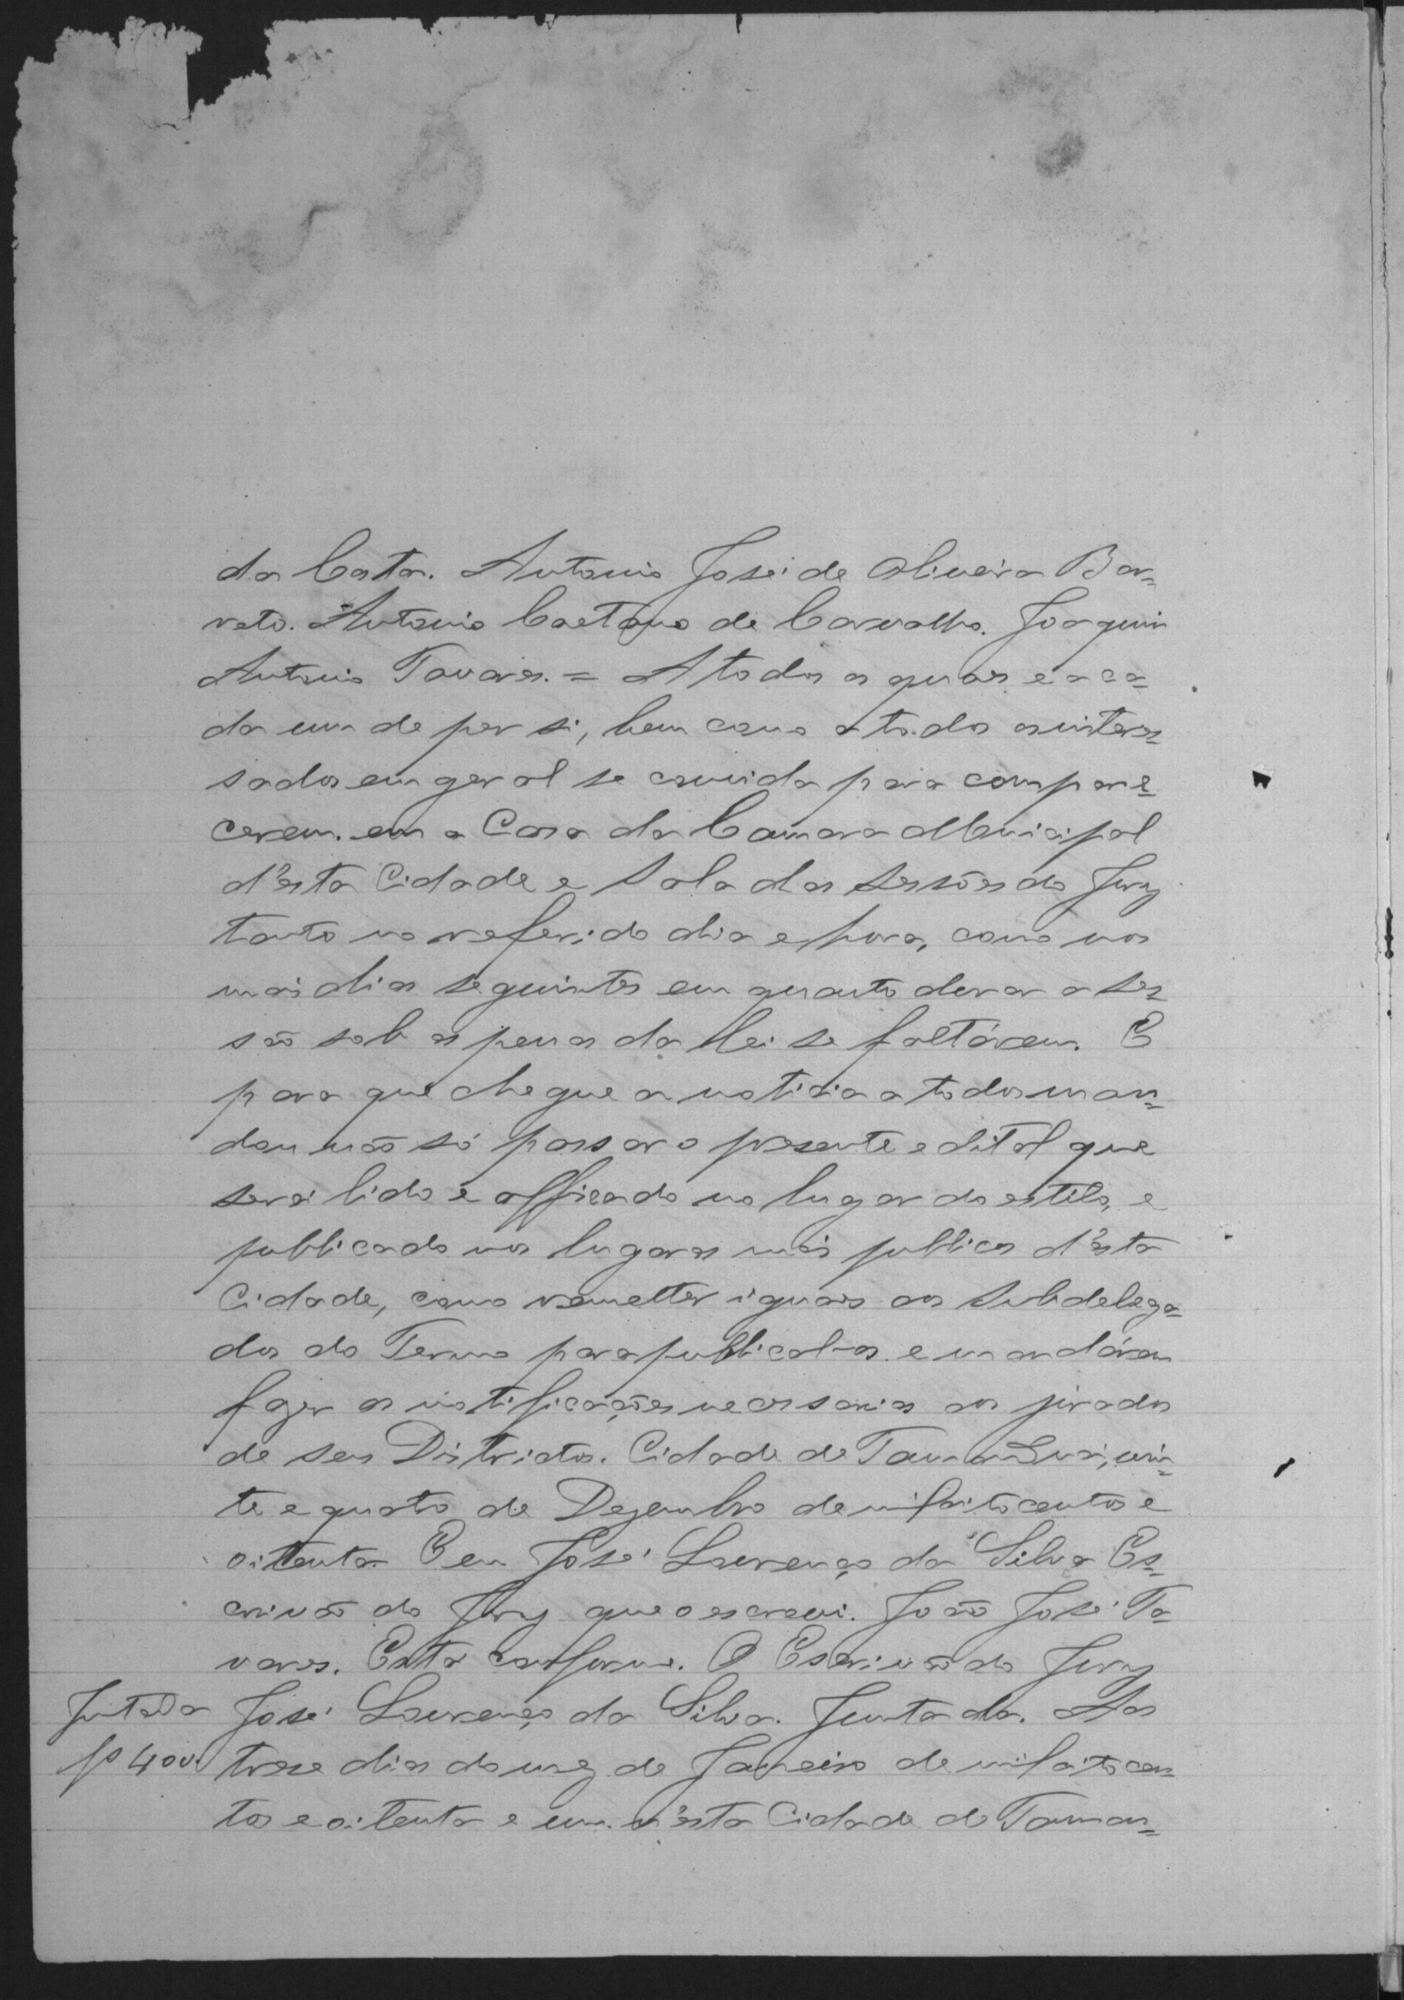 da Costa. Antonio José de Oliveira Bar=
reto. Antonio Caetano de Carvalho. Joaquim
Antonio Tavares. = A todos os quaes e a ca=
da um de per si, bem como a todos os interes=
sados em geral se convida para compare=
cerem em a Casa da Camara Municipal
d'esta Cidade e Sala das Sessões do Jury
tanto no referido dia e hora, como nos
mais dias seguintes em quanto durar a Ses=
são sob as penas da lei se faltárem. E
para que chegue a noticia a todos man=
dou não só passar o presente edital que
será lido e afficado no lugar do estilo, e
publicado nos lugares mais publicos d'esta
Cidade, como remetter iguais aos Subdelega=
dos do Termo para publical-os e mandárem
fazer as notificações necessarias aos jurados
de seus Districtos. Cidade de Tamanduá, vin=
te e quatro de Dezembro de mil oitocentos e
oitenta. E eu José Lourenço da Silva Es=
crivão do Jury que o escrevi. João José Ta=
vares. Está conforme. O Escrivão do Jury
Juntada José Lourenço da Silva. Juntada. Aos
400 treze dias do mez de Janeiro de mil oitocen=
tos e oitenta e um n'esta Cidade de Taman=